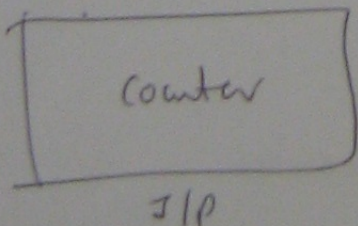 Counter
I/P